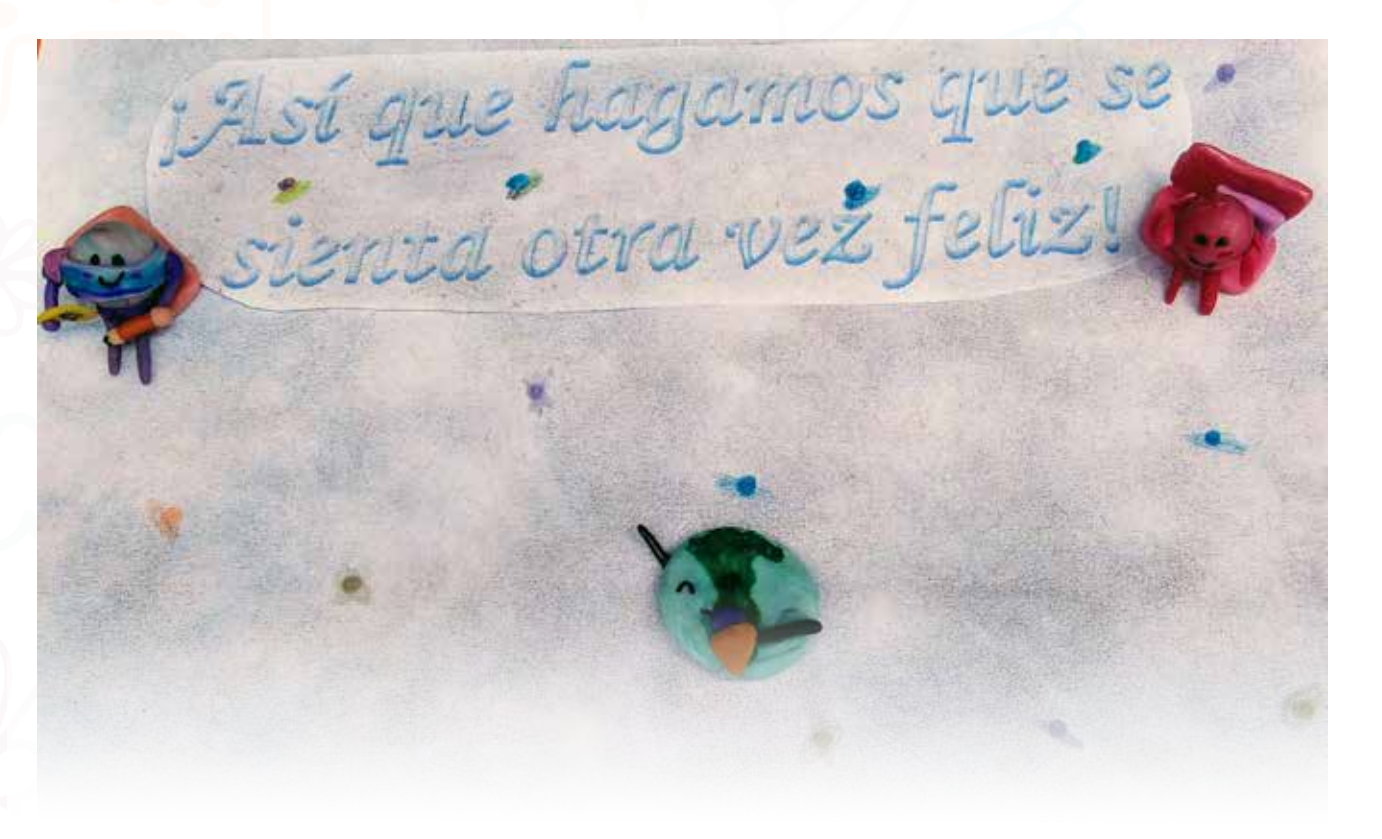 ¡Así que hagamos que se
sienta otra vez feliz!